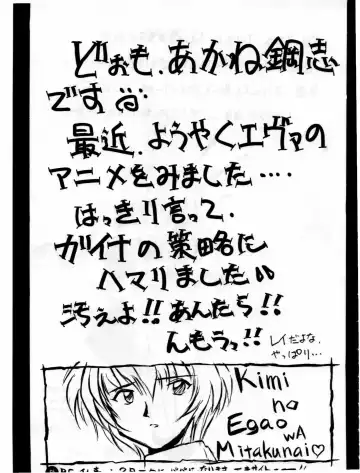 どぉも、あかね鋼志
です
最近、ようやくエヴァの
アニメをみました….
はっきり言って、
ガイナの策略に
ハマリました
汚えよ!!あんたら!!
んもうっ!!
レイだよな、
やっぱり…
Kimi
no
Egao
WA
Mitakunai♡